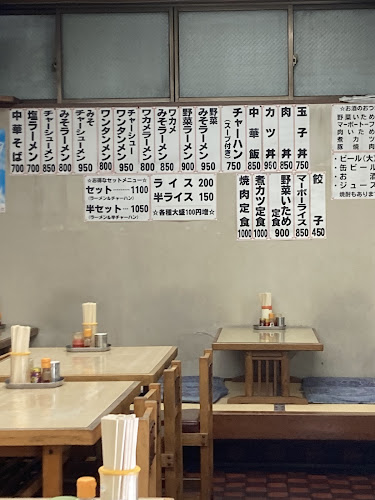 中華そば 700
塩ラーメン 700
チャーシューメン 850
みそラーメン 800
みそチャーシューメン 950
ワンタンメン 800
チャーシューワンタンメン 950
ワカメラーメン 800
ワカメみそラーメン 850
野菜ラーメン 800
野菜みそラーメン 950
チャーハン(スープ付き) 750
中華飯 850
カツ丼 950
肉丼 850
玉子丼 750
☆お得なセットメニュー☆
セット……1100
(ラーメン&チャーハン)
半セット…1050
(ラーメン&半チャーハン)
ライス 200
半ライス 150
☆各種大盛100円増☆
焼肉定食 1000
煮カツ定食 1000
野菜いため定食 900
マーボーライス 850
餃子 450
☆お酒のおつ
野菜いため
マーボートーフ
肉いため
煮カツ
豚焼肉
・ビール(大)
・缶ビール
・お酒
・ジュース